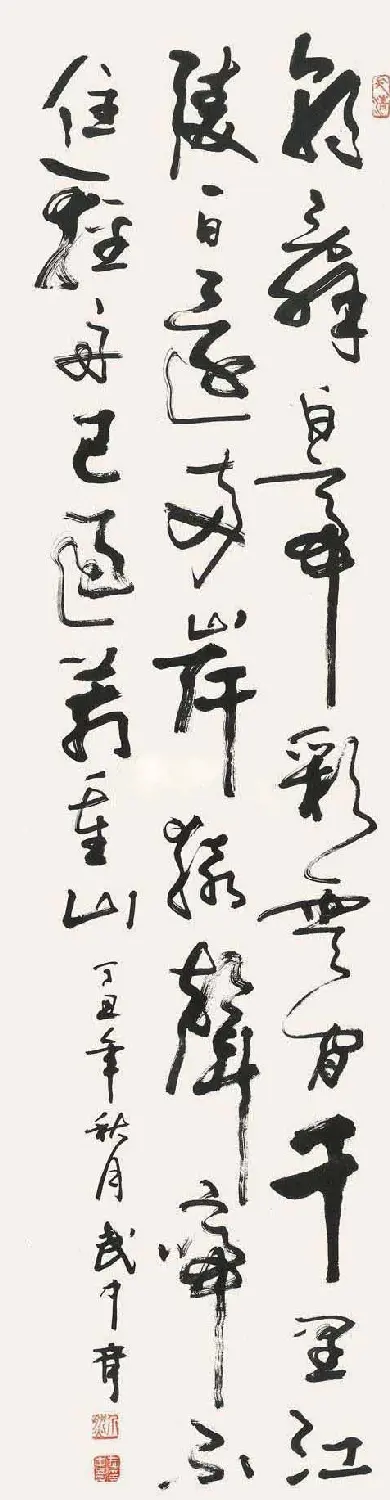 朝辭白帝彩雲間千里江
陵一日還兩岸猿聲啼不
住輕舟已過萬重山 丁丑年秋月 武中奇